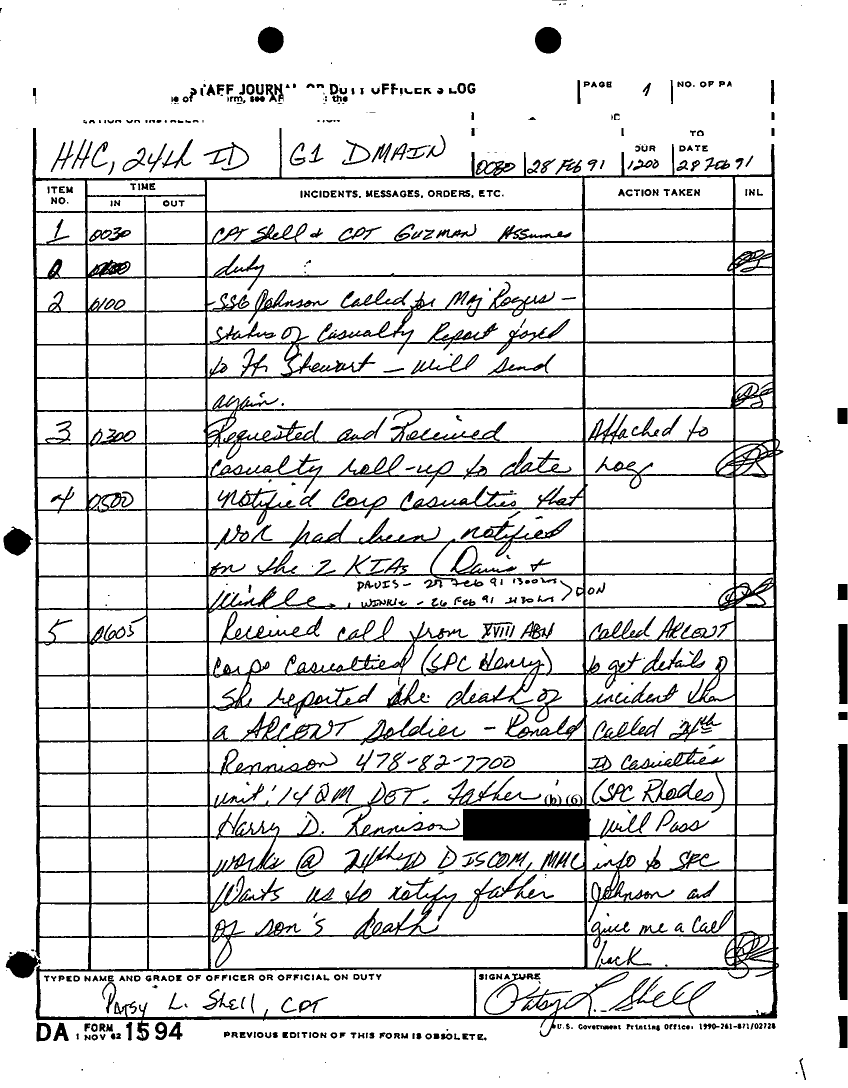 STAFF JOURNAL OR DUTY OFFICER'S LOG
PAGE 1 NO. OF PA
rm, see the
TO
OUR DATE
HHC, 24th ID G1 DMAIN 0030 28 Feb 91 1200 28 Feb 91
ITEM NO. TIME IN OUT INCIDENTS, MESSAGES, ORDERS, ETC. ACTION TAKEN INL
1 0030 CPT Shell & CPT GUZMAN Assumes
duty
2 0100 -SSG Johnson called for Maj Rogers -
Status of Casualty Report faxed
to Ft Stewart - will send
again.
3 0300 Requested and Received Attached to
casualty roll-up to date Log
4 0500 Notified Corp Casualties that
NOK had been notified
on the 2 KIAs (Davis &
DAVIS - 27 Feb 91 1300 hrs
Winkle. , WINKLE - 26 Feb 91 hrs > DON
5 0605 Received call from XVIII ABN Called ARCENT
Corps Casualties (SPC Henry) to get details of
She reported the death of incident then
a ARCENT soldier - Ronald Called 24th
Rennison 478-82-7700 ID Casualties
unit: 14 QM DET. Father (b)(6) (SPC Rhodes)
Harry D. Rennison will Pass
works @ 24th ID DISCOM, MMC info to SPC
Wants us to notify father Johnson and
of son's death give me a call
back.
TYPED NAME AND GRADE OF OFFICER OR OFFICIAL ON DUTY SIGNATURE
Patsy L. Shell, CPT Patsy L. Shell
DA FORM 1 NOV 62 1594 PREVIOUS EDITION OF THIS FORM IS OBSOLETE. U.S. Government Printing Office: 1990-261-871/02728